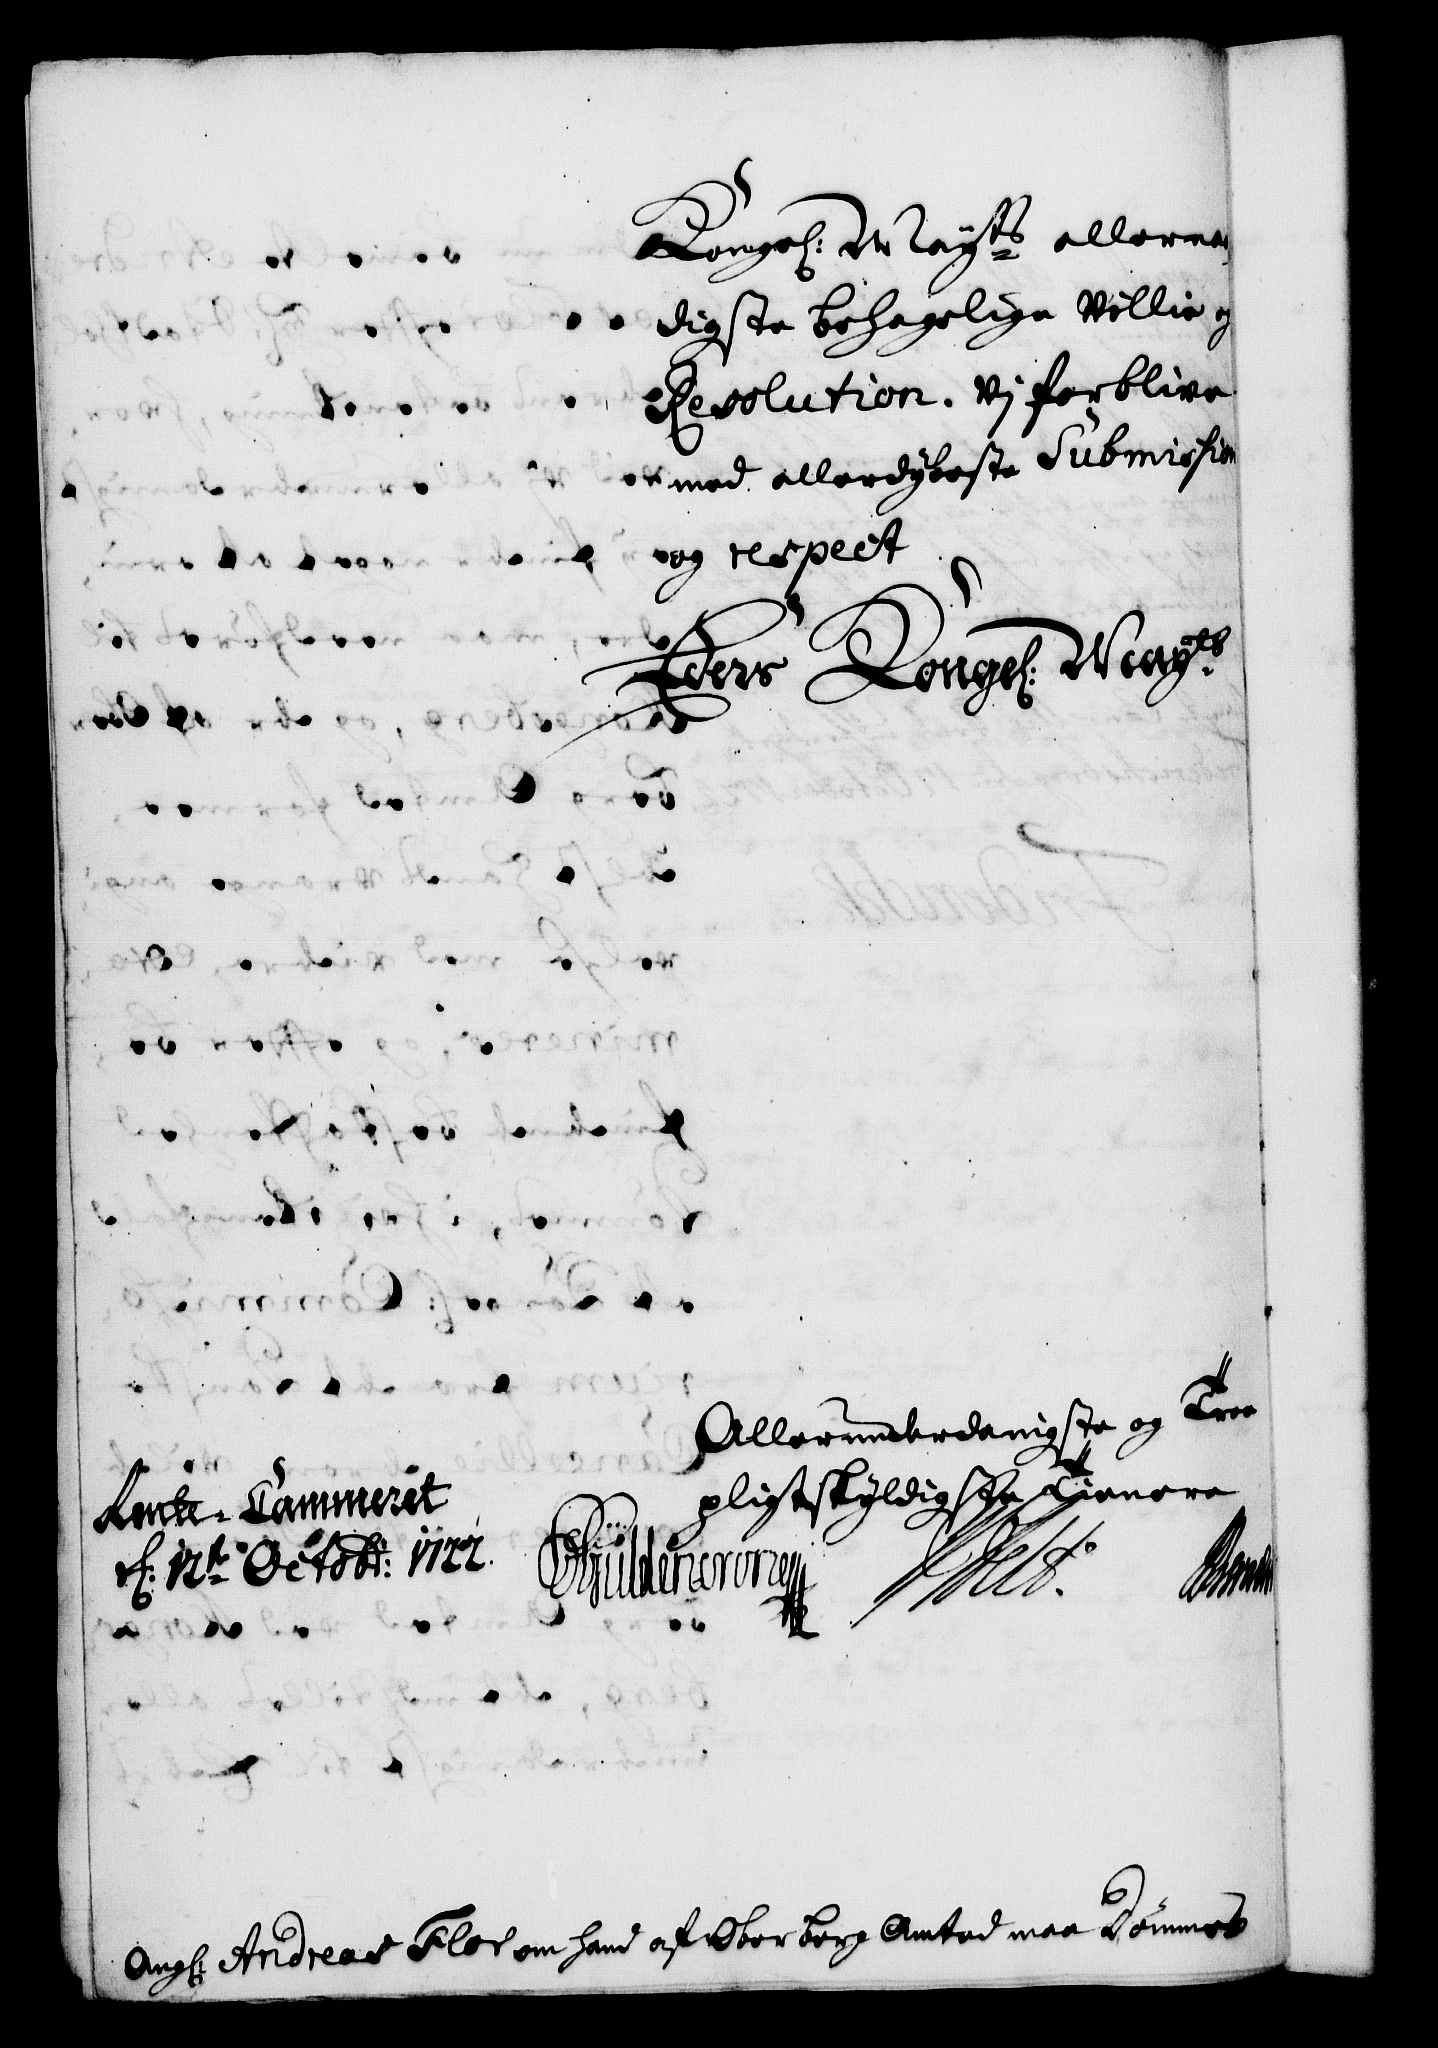 Kongel: Mayts allernaa,
digste behagelige Villie og
Resolution. Vj forblive
med allerdybeste Submission
og respect
Eders Kongel: Mayts
Allerunderdanigste og Troe
pligtskyldigste Tienere
Rente-Cammeret
d: 12te Octobr: 1722.
Gyldencrone
Angl: Andreas Flor om hand af Ober berg Amted maa Dømmes